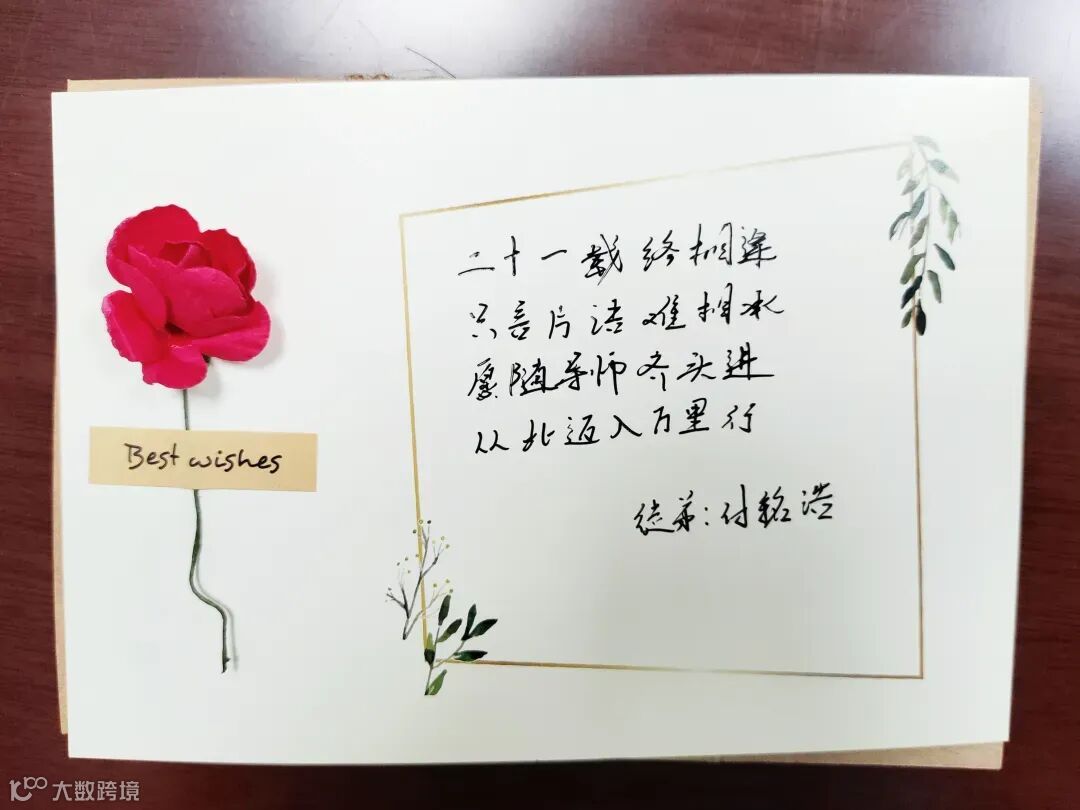 Best wishes
二十一载终相逢
只言片语难相承
愿随导师齐头进
从此迈入万里行
徒弟：付铭浩
大数跨境